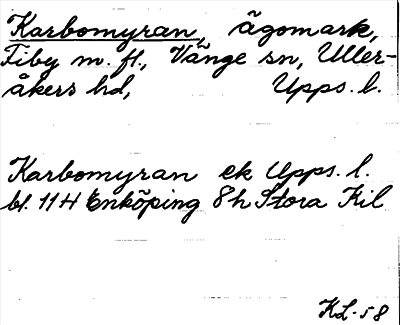 Karbomyran, ägomark,
Fiby m. fl., Vänge sn, Uller-
åkers hd, Upps. l.
Karbomyran ek Upps. l.
bl. 11 H Enköping 8 h Stora Kil
KL-58